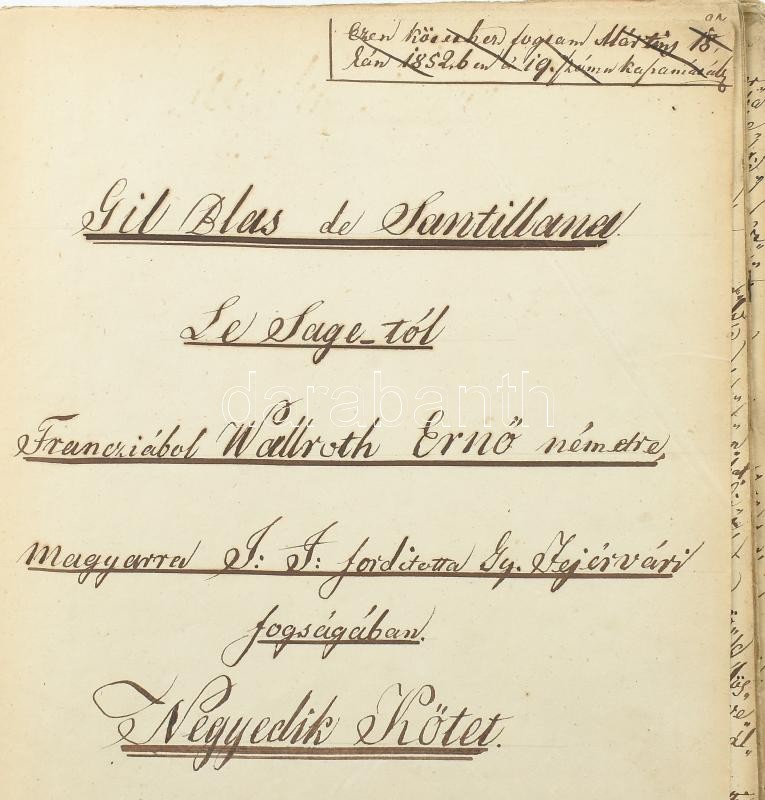 Ezen kötethez fogtam Mártius 18.
kán 1852ben a 19. számu kazamatába
Gil Blas de Santillana.
Le Sage-tól
Francziából Wallroth Ernő németre,
magyarra J: J: forditotta Gy. Fejérvári
fogságában.
Negyedik Kötet.
darabanth